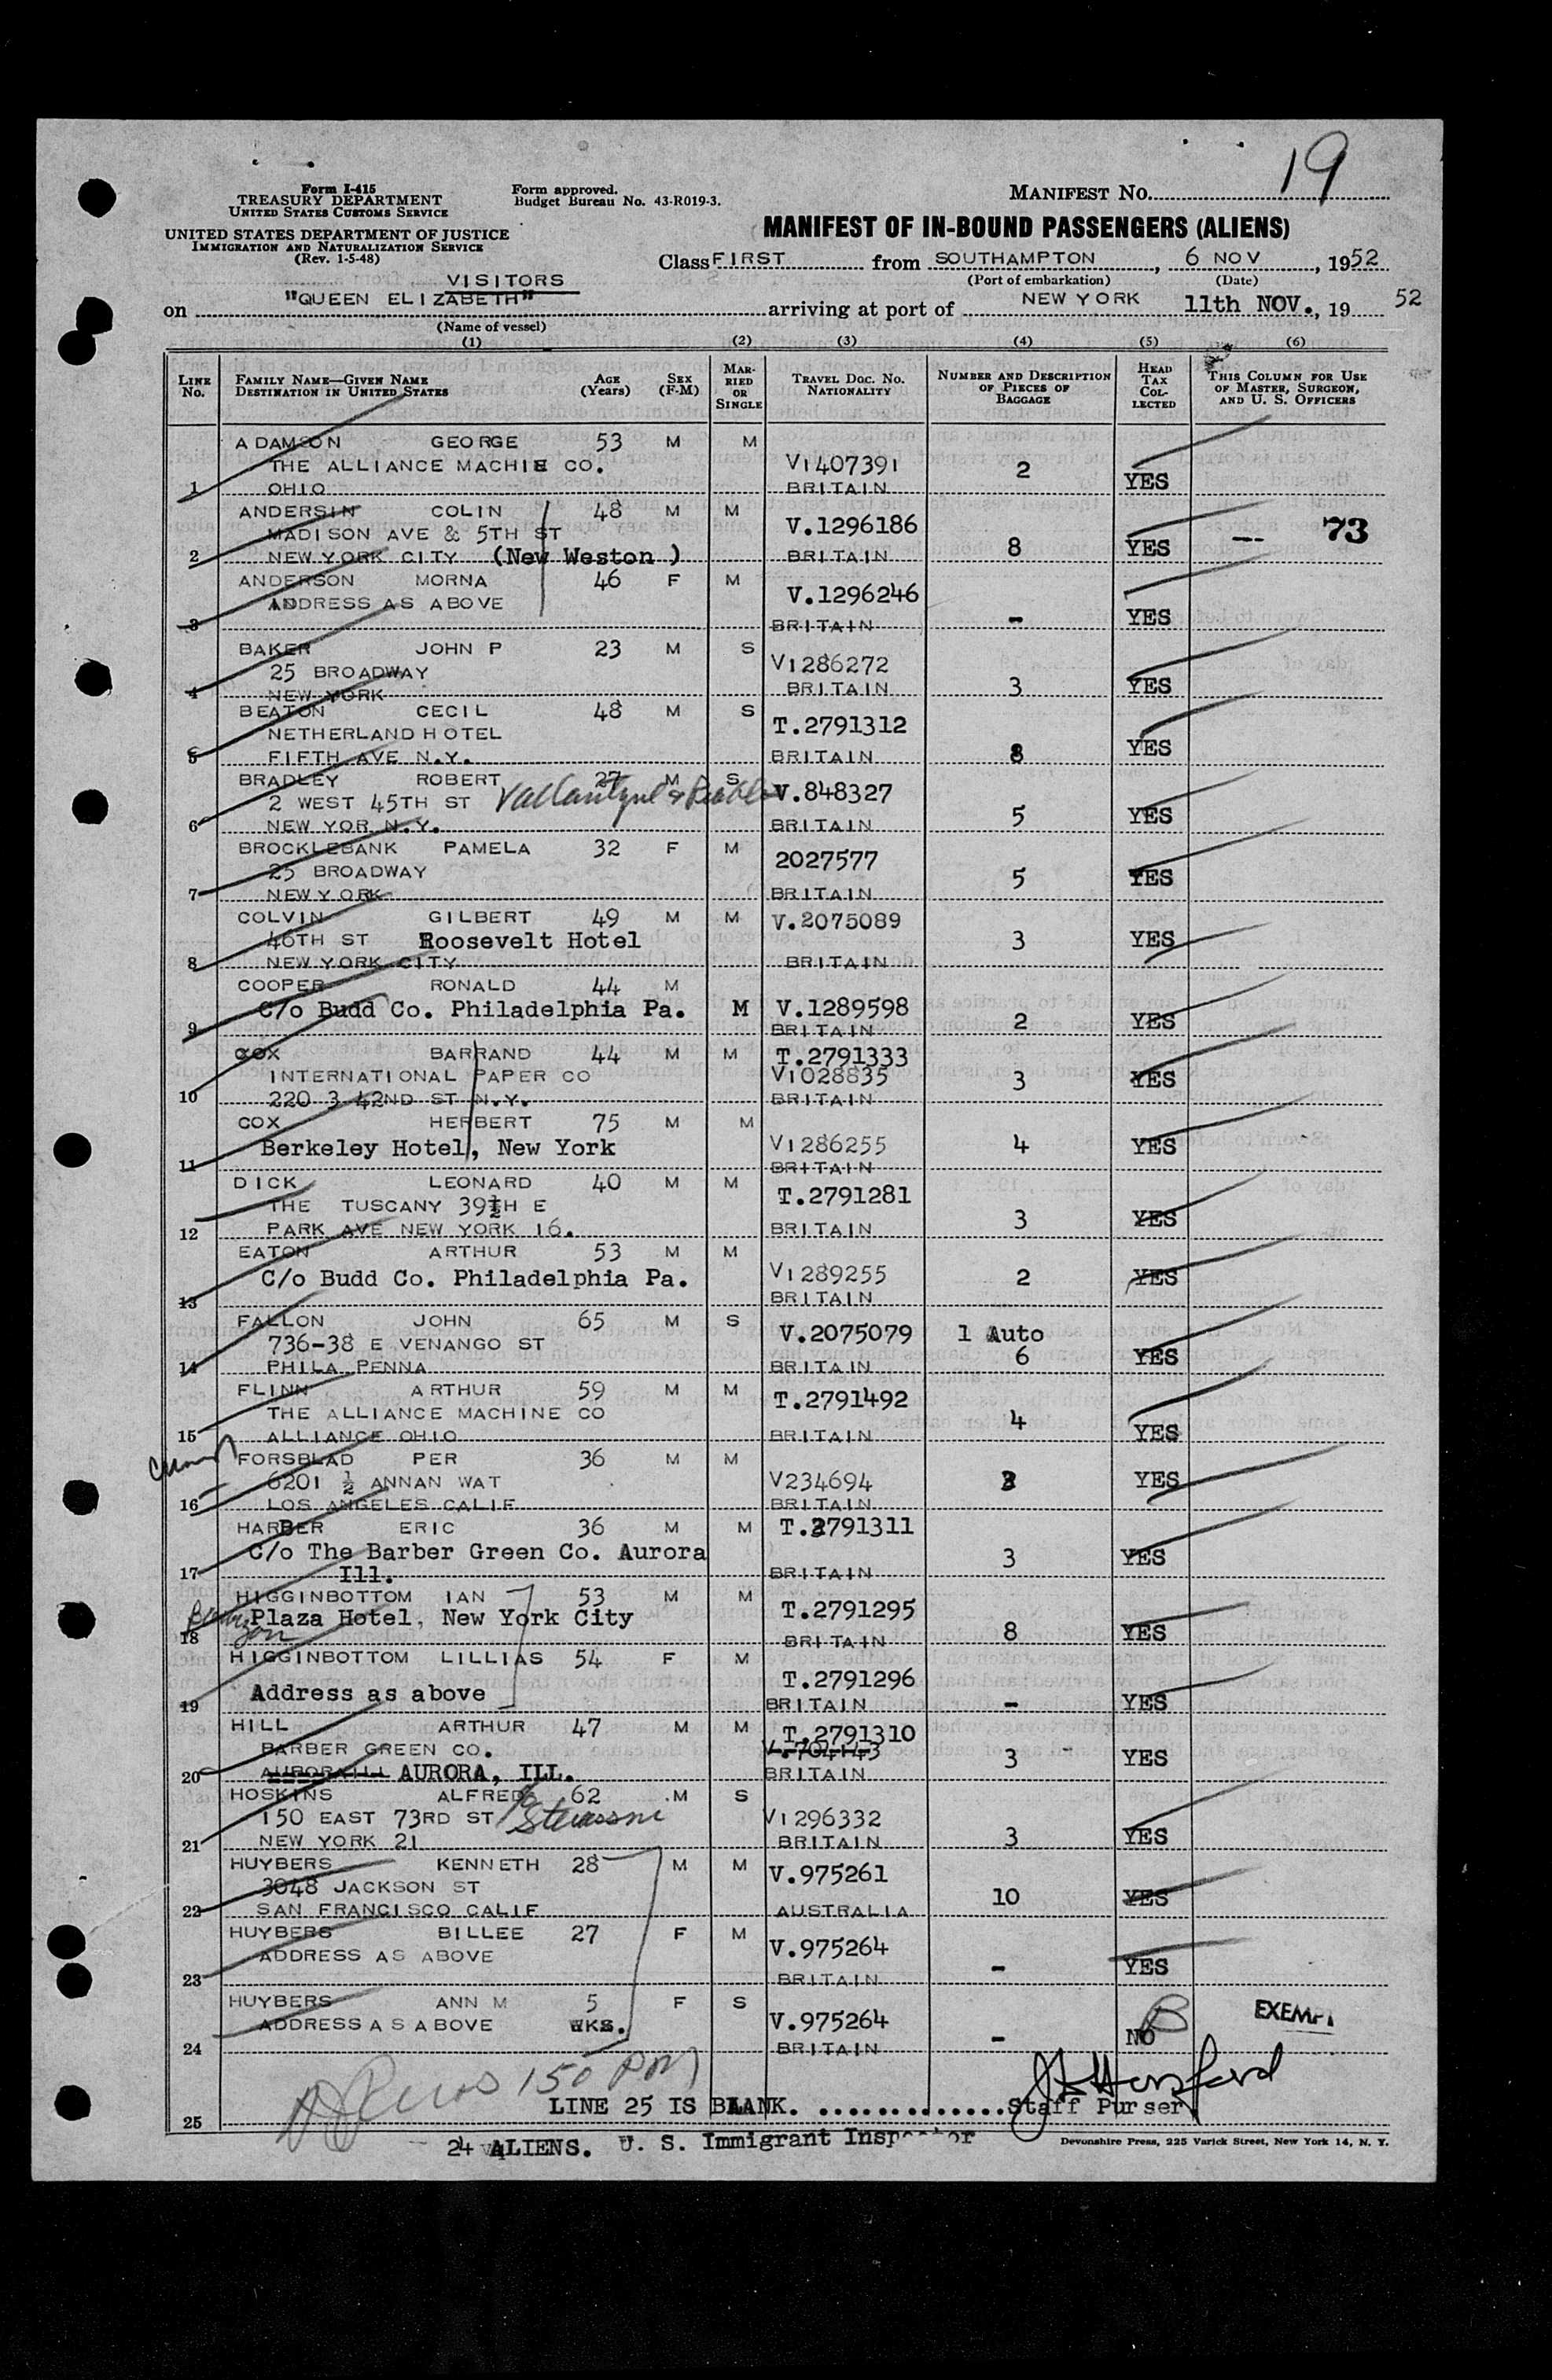 19
Form I-415
TREASURY DEPARTMENT
UNITED STATES CUSTOMS SERVICE
Form approved.
Budget Bureau No. 43-R019-3.
MANIFEST No.
UNITED STATES DEPARTMENT OF JUSTICE
IMMIGRATION AND NATURALIZATION SERVICE
(Rev. 1-5-48)
MANIFEST OF IN-BOUND PASSENGERS (ALIENS)
Class FIRST from SOUTHAMPTON, 6 NOV, 1952
(Port of embarkation) (Date)
VISITORS
on "QUEEN ELIZABETH" arriving at port of NEW YORK 11th NOV., 19 52
(Name of vessel)
(1) (2) (3) (4) (5) (6)
LINE No. FAMILY NAME—GIVEN NAME DESTINATION IN UNITED STATES AGE (Years) SEX (F-M) MARRIED OR SINGLE TRAVEL DOC. NO. NATIONALITY NUMBER AND DESCRIPTION OF PIECES OF BAGGAGE HEAD TAX COLLECTED THIS COLUMN FOR USE OF MASTER, SURGEON, AND U. S. OFFICERS
ADAMSON GEORGE 53 M M
THE ALLIANCE MACHIE CO. V1407391 2 YES
1 OHIO BRITAIN
ANDERSIN COLIN 48 M M
MADISON AVE & 5TH ST V.1296186 73
2 NEW YORK CITY (New Weston ) BRITAIN 8 YES --
ANDERSON MORNA 46 F M
ADDRESS AS ABOVE V.1296246
3 BRITAIN - YES
BAKER JOHN P 23 M S
25 BROADWAY V1286272
4 NEW YORK BRITAIN 3 YES
BEATON CECIL 48 M S
NETHERLAND HOTEL T.2791312
5 FIFTH AVE N.Y. BRITAIN 8 YES
BRADLEY ROBERT 27 M S
2 WEST 45TH ST V.848327
6 NEW YOR N.Y. BRITAIN 5 YES
BROCKLEBANK PAMELA 32 F M
25 BROADWAY 2027577
7 NEW YORK BRITAIN 5 YES
COLVIN GILBERT 49 M M V.2075089
46TH ST Roosevelt Hotel 3 YES
8 NEW YORK CITY BRITAIN
COOPER RONALD 44 M
C/o Budd Co. Philadelphia Pa. M V.1289598
9 BRITAIN 2 YES
COX BARRAND 44 M M T.2791333
INTERNATIONAL PAPER CO V1028835 3 YES
10 220 3 42ND ST N.Y. BRITAIN
COX HERBERT 75 M M
Berkeley Hotel, New York V1286255 4 YES
11 BRITAIN
DICK LEONARD 40 M M
THE TUSCANY 39TH E T.2791281
12 PARK AVE NEW YORK 16. BRITAIN 3 YES
EATON ARTHUR 53 M M
C/o Budd Co. Philadelphia Pa. V1289255 2 YES
13 BRITAIN
FALLON JOHN 65 M S
736-38 E VENANGO ST V.2075079 1 Auto
14 PHILA PENNA BRITAIN 6 YES
FLINN ARTHUR 59 M M
THE ALLIANCE MACHINE CO T.2791492 4
15 ALLIANCE OHIO BRITAIN YES
FORSBLAD PER 36 M M
6201 ½ ANNAN WAT V234694 3 YES
16 LOS ANGELES CALIF BRITAIN
HARBER ERIC 36 M M T.2791311
C/o The Barber Green Co. Aurora 3 YES
17 Ill. BRITAIN
HIGGINBOTTOM IAN 53 M M
Plaza Hotel, New York City T.2791295
18 BRITAIN 8 YES
HIGGINBOTTOM LILLIAS 54 F M
Address as above T.2791296
19 BRITAIN - YES
HILL ARTHUR 47 M M T.2791310
BARBER GREEN CO. V.704143 3 YES
20 AURORA ILL AURORA, ILL. BRITAIN
HOSKINS ALFRED 62 M S
150 EAST 73RD ST V1296332
21 NEW YORK 21 BRITAIN 3 YES
HUYBERS KENNETH 28 M M
3048 JACKSON ST V.975261
22 SAN FRANCISCO CALIF AUSTRALIA 10 YES
HUYBERS BILLEE 27 F M
ADDRESS AS ABOVE V.975264
23 BRITAIN - YES
HUYBERS ANN M 5 F S
ADDRESS AS ABOVE WKS. V.975264 NO EXEMPT
24 BRITAIN -
150 PM
25 LINE 25 IS BLANK. Staff Purser
24 ALIENS. U. S. Immigrant Inspector
Devonshire Press, 225 Varick Street, New York 14, N. Y.